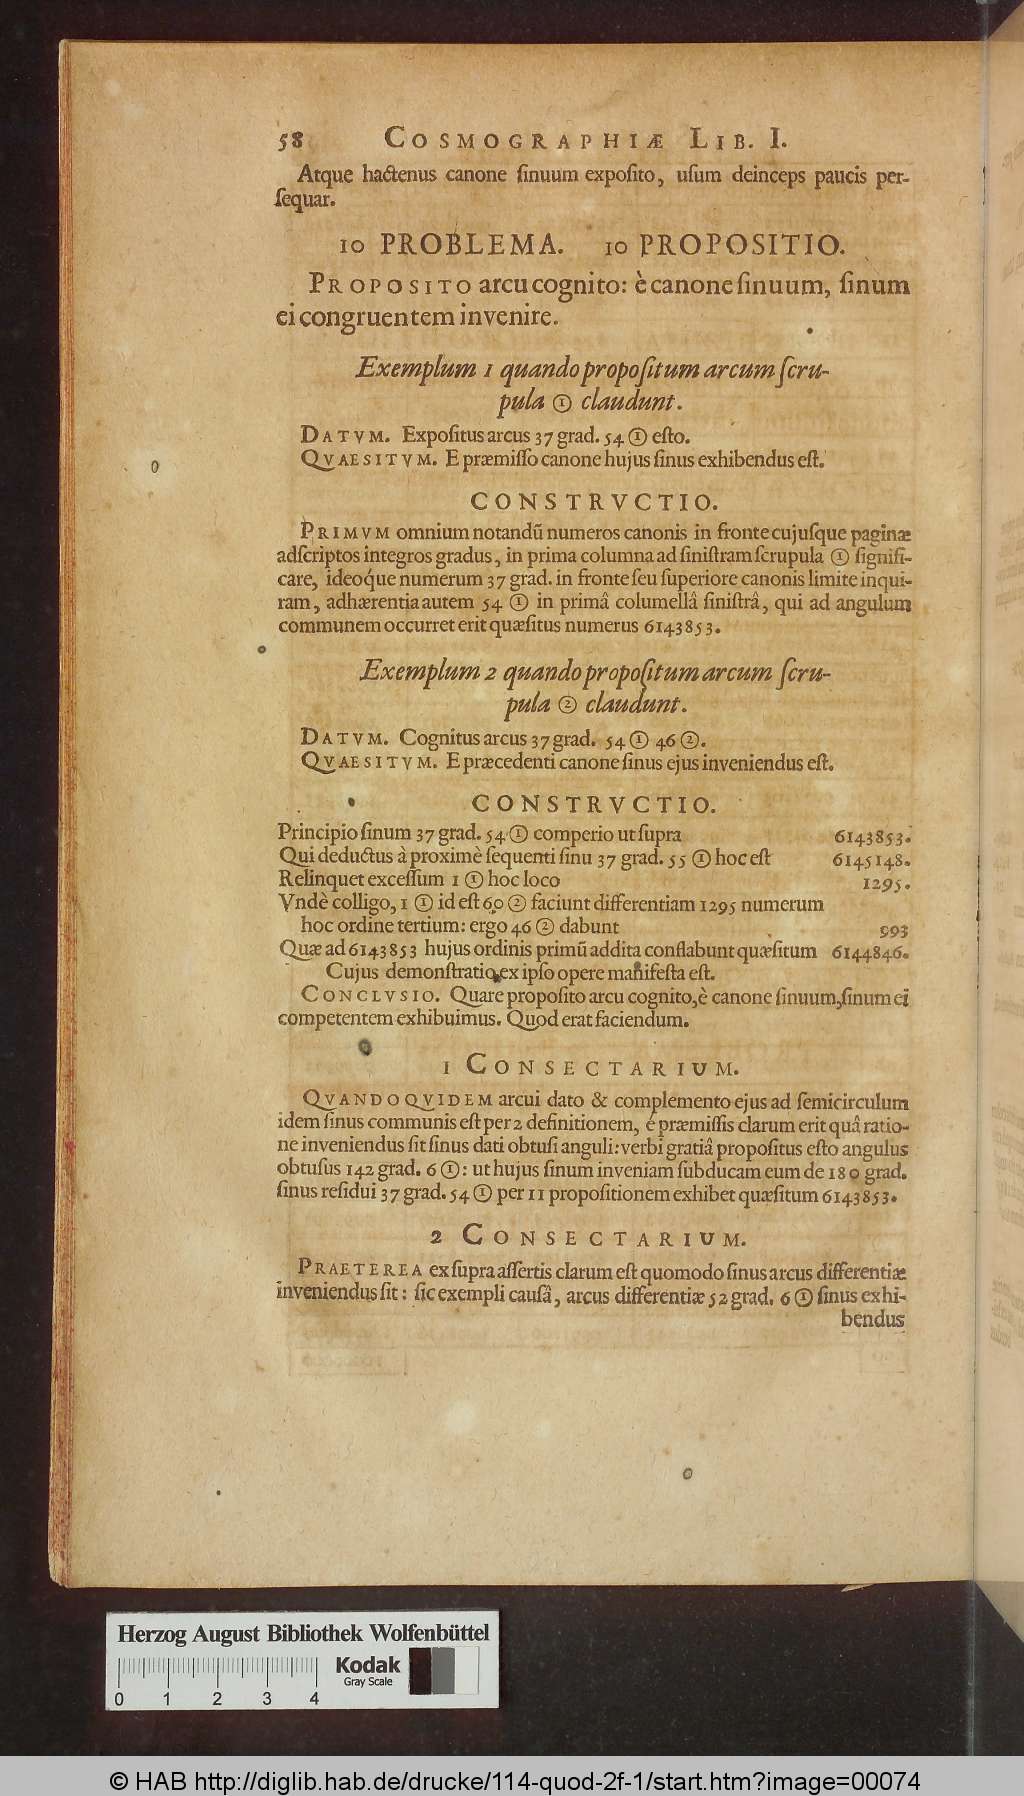 58 COSMOGRAPHIÆ LIB. I.
Atque hactenus canone ſinuum expoſito, uſum deinceps paucis per-
ſequar.
10 PROBLEMA. 10 PROPOSITIO.
PROPOSITO arcu cognito: è canone ſinuum, ſinum
ei congruentem invenire.
Exemplum 1 quando propoſitum arcum ſcru-
pula ① claudunt.
DATVM. Expoſitus arcus 37 grad. 54 ① eſto.
QVAESITVM. E præmiſſo canone hujus ſinus exhibendus eſt.
CONSTRVCTIO.
PRIMVM omnium notandũ numeros canonis in fronte cujuſque paginæ
adſcriptos integros gradus, in prima columna ad ſiniſtram ſcrupula ① ſignifi-
care, ideoq́ue numerum 37 grad. in fronte ſeu ſuperiore canonis limite inqui-
ram, adhærentia autem 54 ① in primâ columellâ ſiniſtrâ, qui ad angulum
communem occurret erit quæſitus numerus 6143853.
Exemplum 2 quando propoſitum arcum ſcru-
pula ② claudunt.
DATVM. Cognitus arcus 37 grad. 54 ① 46 ②.
QVAESITVM. E præcedenti canone ſinus ejus inveniendus eſt.
CONSTRVCTIO.
Principio ſinum 37 grad. 54 ① comperio ut ſupra 6143853.
Qui deductus à proximè ſequenti ſinu 37 grad. 55 ① hoc eſt 6145148.
Relinquet exceſſum 1 ① hoc loco 1295.
Vndè colligo, 1 ① id eſt 60 ② faciunt differentiam 1295 numerum
hoc ordine tertium: ergo 46 ② dabunt 993
Quæ ad 6143853 hujus ordinis primũ addita conflabunt quæſitum 6144846.
Cujus demonſtratio ex ipſo opere manifeſta eſt.
CONCLVSIO. Quare propoſito arcu cognito, è canone ſinuum, ſinum ei
competentem exhibuimus. Quod erat faciendum.
1 CONSECTARIUM.
QVANDOQVIDEM arcui dato & complemento ejus ad ſemicirculum
idem ſinus communis eſt per 2 definitionem, è præmiſſis clarum erit quâ ratio-
ne inveniendus ſit ſinus dati obtuſi anguli: verbi gratiâ propoſitus eſto angulus
obtuſus 142 grad. 6 ①: ut hujus ſinum inveniam ſubducam eum de 180 grad.
ſinus reſidui 37 grad. 54 ① per 11 propoſitionem exhibet quæſitum 6143853.
2 CONSECTARIUM.
PRAETEREA ex ſupra aſſertis clarum eſt quomodo ſinus arcus differentiæ
inveniendus ſit: ſic exempli cauſâ, arcus differentiæ 52 grad. 6 ① ſinus exhi-
bendus
Herzog August Bibliothek Wolfenbüttel
Kodak
Gray Scale
0 1 2 3 4
© HAB http://diglib.hab.de/drucke/114-quod-2f-1/start.htm?image=00074